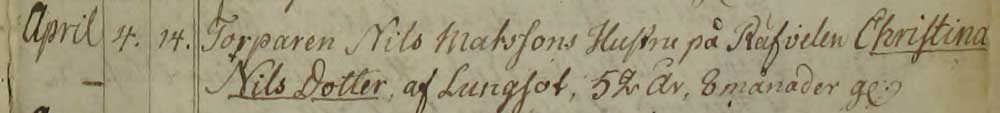 April 4. 14. Torparen Nils Matssons Hustru på Räfvelen Christina
– Nils Dotter, af Lungsot, 52 År, 8 månader g.